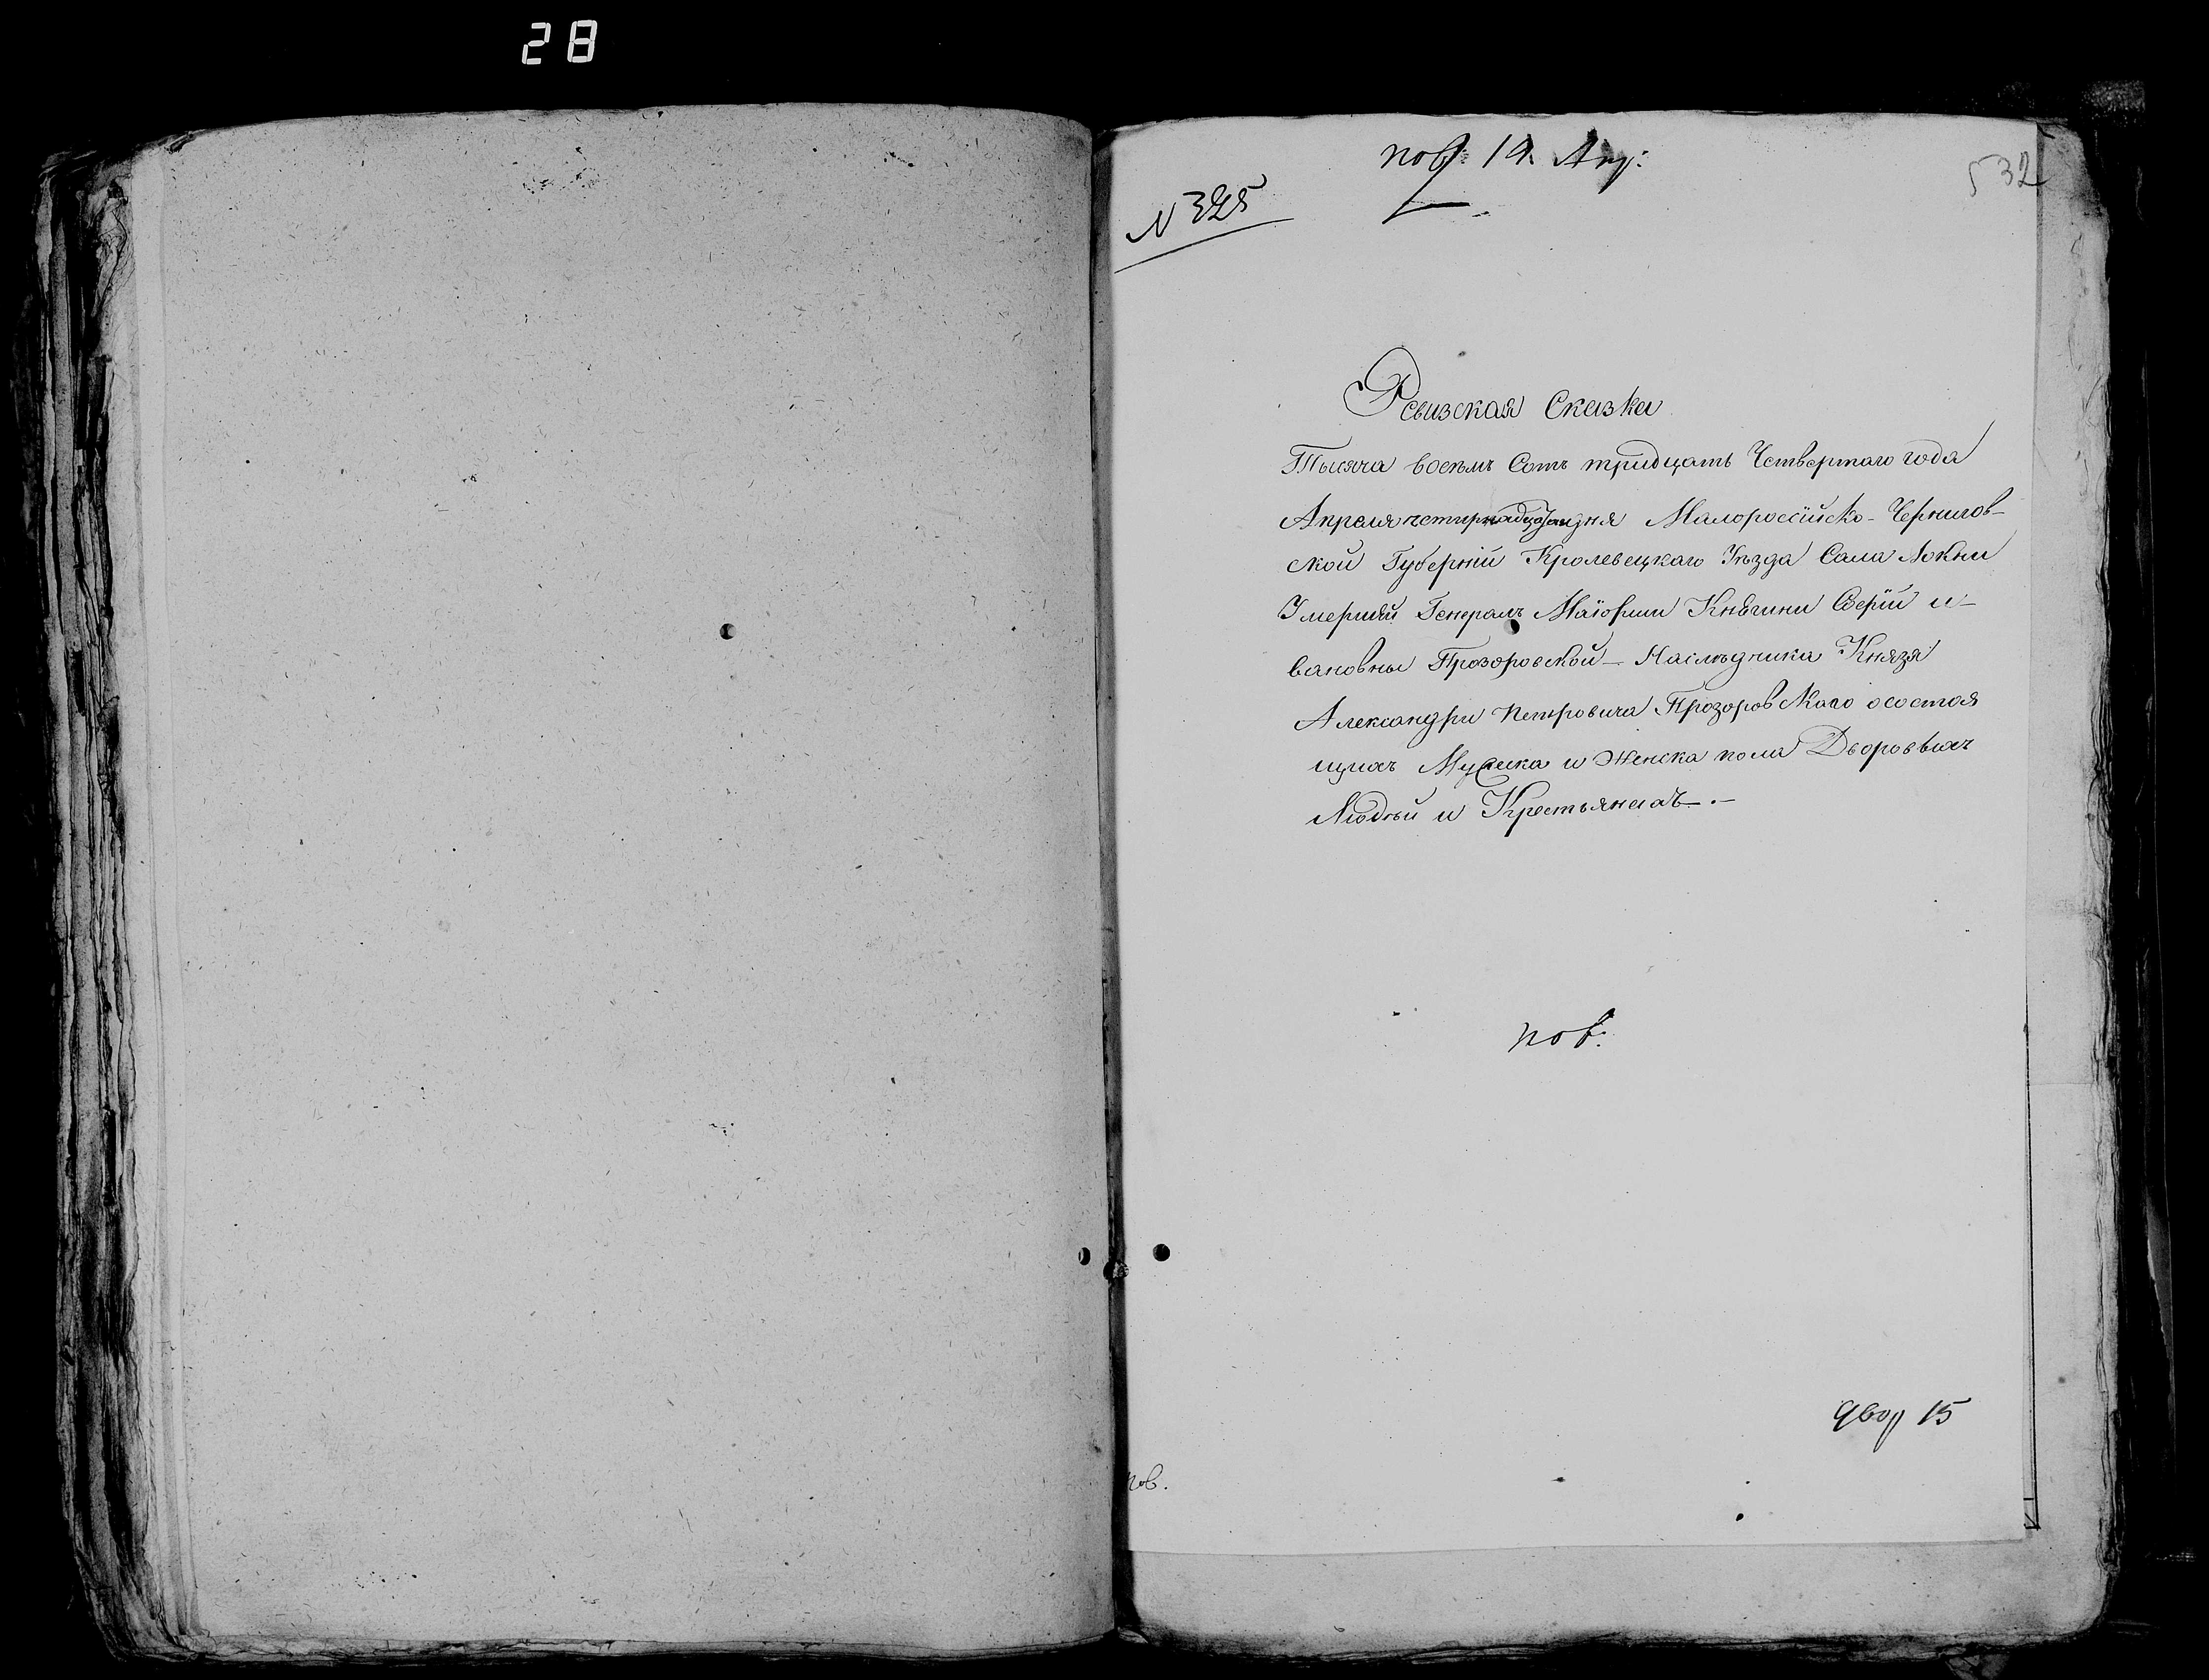 28
пов: 19. Апр:
532
N 325
Ревизская Сказка
Тысяча восемъ Сотъ тридцать Четвертаго года
Апреля четирнадцатаго дня Малороссійско-Чернигов-
ской Губерніи Кролевецкаго Уезда Села Локни
Умершей Генералъ Маіорши Княгини Софіи и-
вановны Прозоровской - Наследника Князя
Александра Петровича Прозоровскаго осостоя
щихъ Мужска и Женска пола Дворовыхъ
Людей и Крестьянехъ.-
пов:
двор 15
пов.